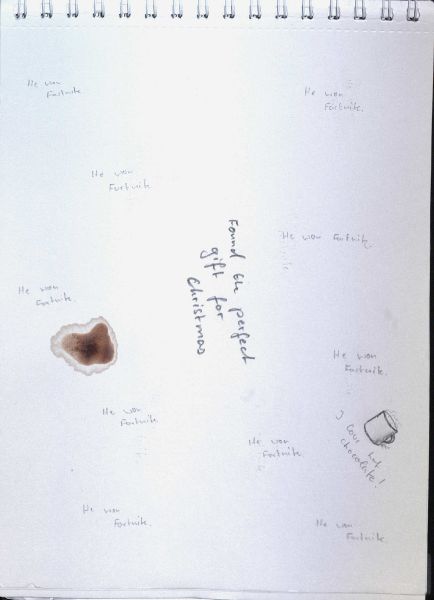 He won
Fortnite
He won
Fortnite.
He won
Fortnite.
He won Fortnite.
Found the perfect
gift for
Christmas
He won
Fortnite.
He won
Fortnite.
He won
Fortnite.
I love hot
chocolate!
He won
Fortnite.
He won
Fortnite.
He won
Fortnite.